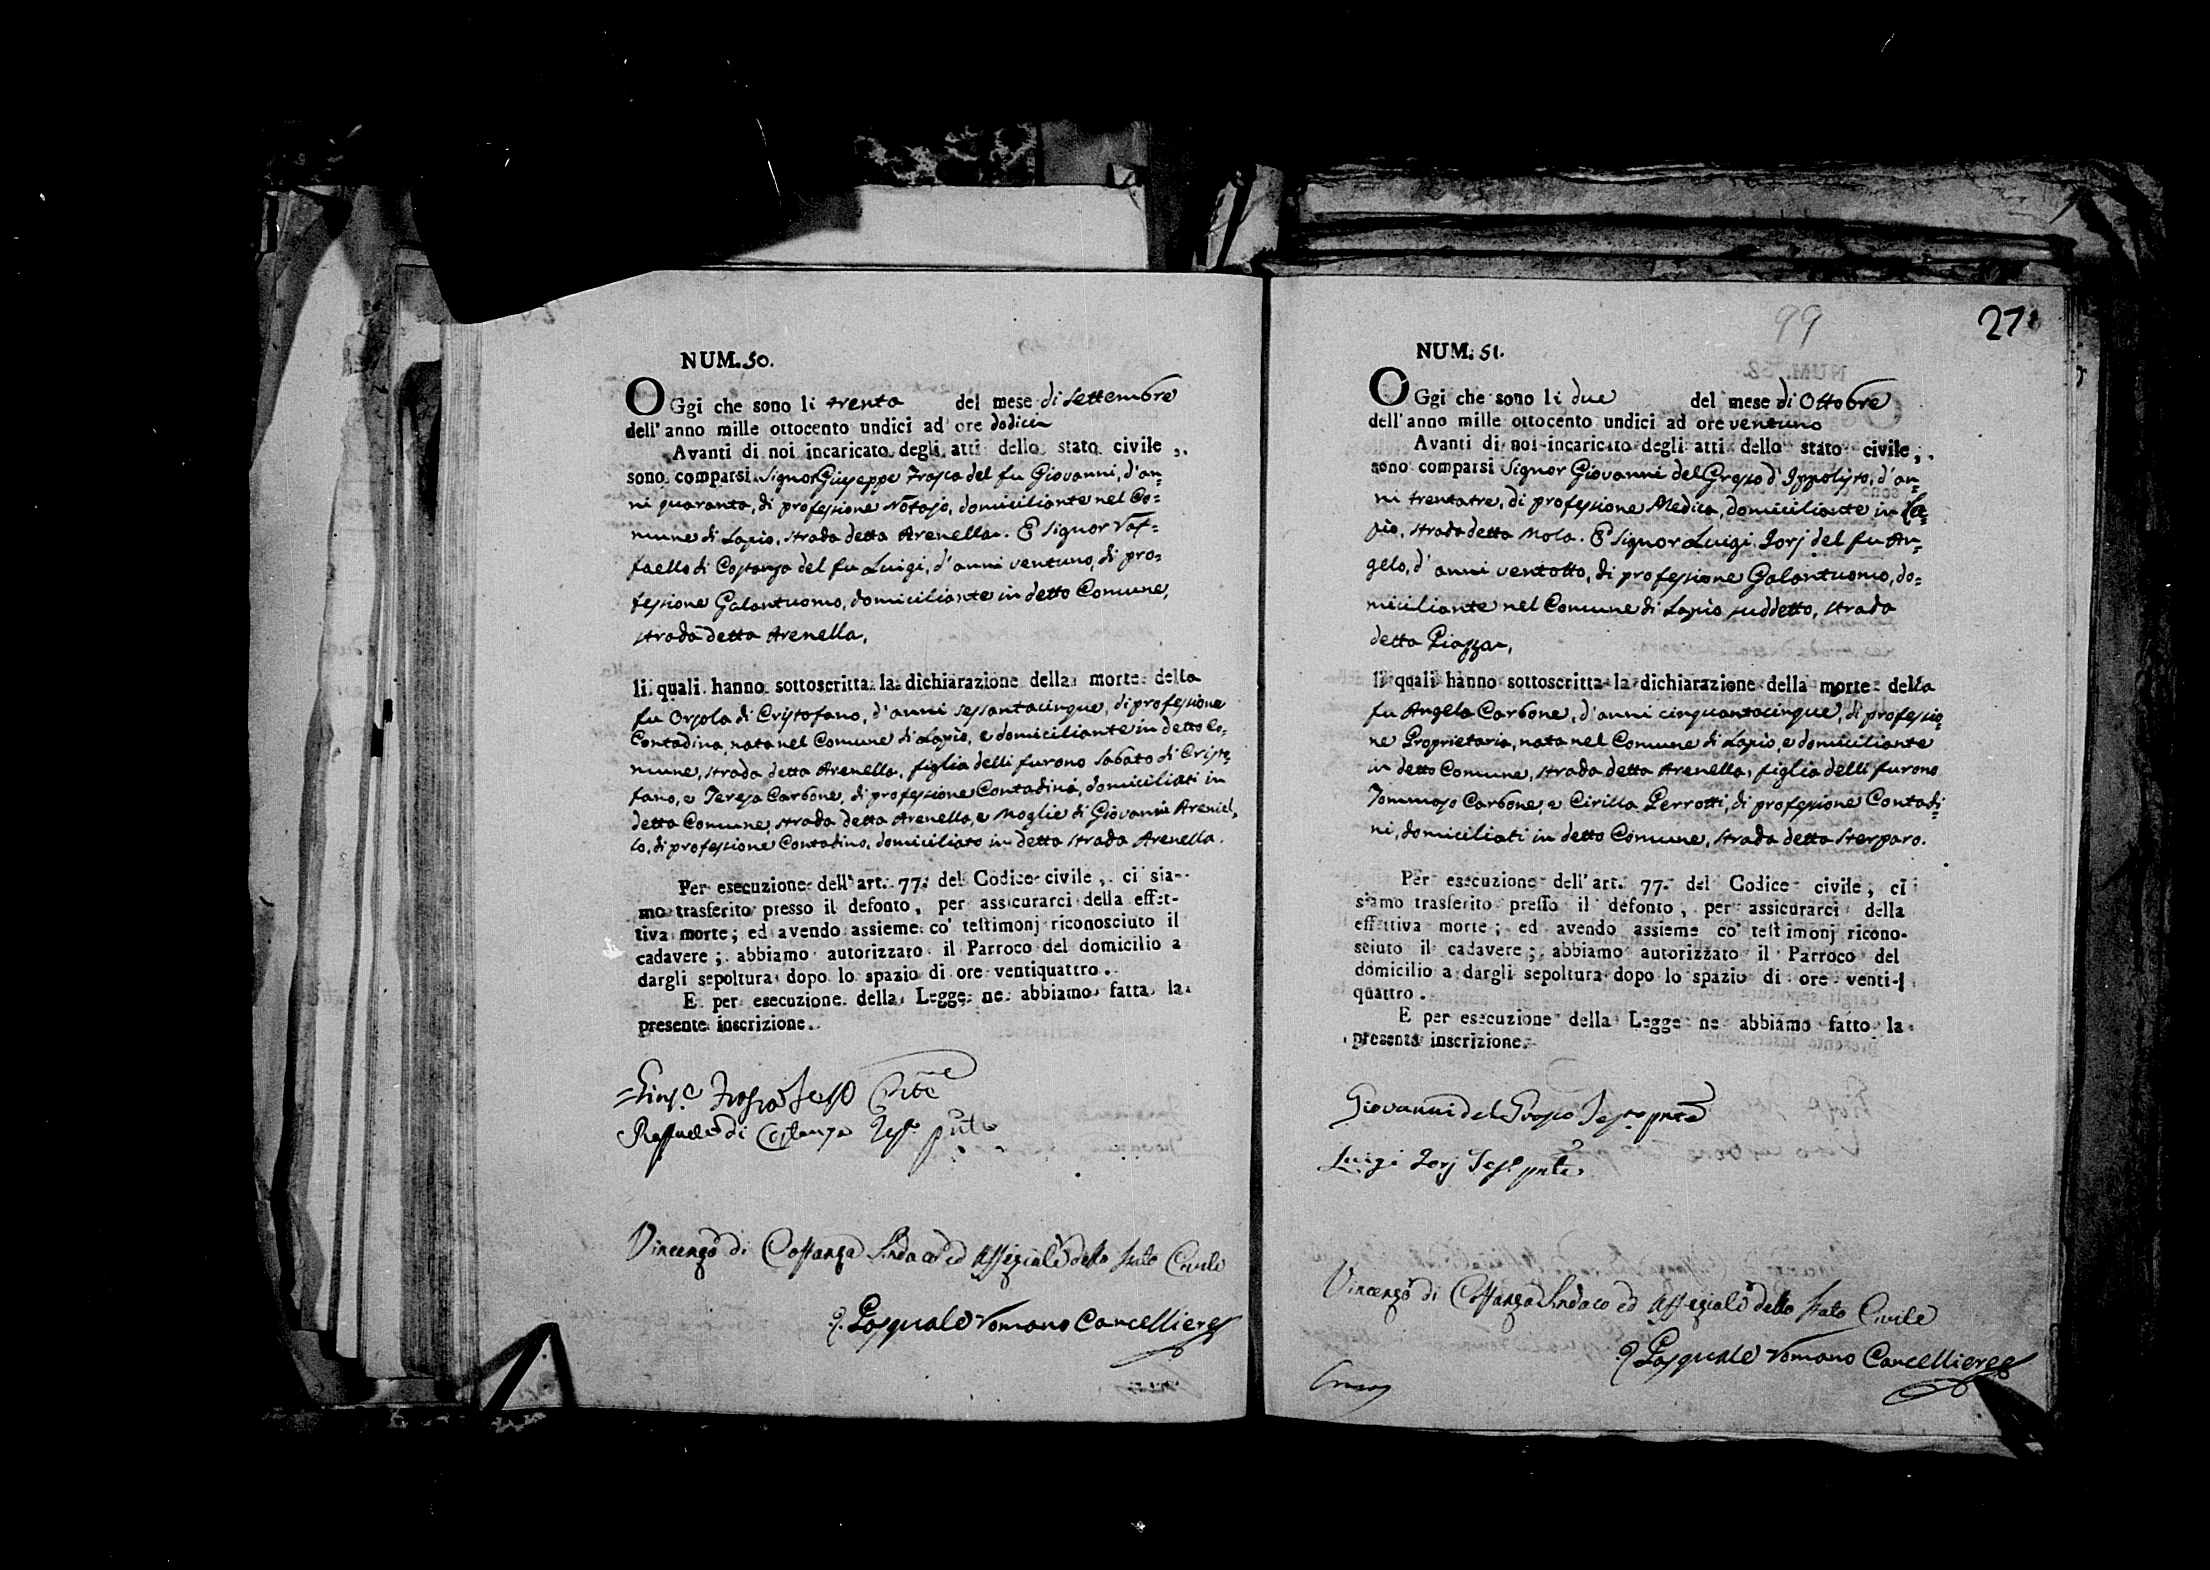 NUM. 50.
OGgi che sono li trenta del mese di Settembre
dell'anno mille ottocento undici ad ore dodici
Avanti di noi incaricato degli atti dello stato civile,
sono comparsi Signor Giuseppe Frasca del fu Giovanni, d'an=
ni quaranta, di professione Notajo, domiciliante nel Co=
mune di Lapio, strada detta Arenella. E Signor Raf=
faello di Costanza del fu Luigi, d'anni ventuno, di pro=
fessione Galantuomo, domiciliante in detto Comune,
strada detta Arenella,
li quali hanno sottoscritta la dichiarazione della morte della
fu Orsola di Cristofano, d'anni sessantacinque, di professione
Contadina, nata nel Comune di Lapio, e domiciliante in detto Co=
mune, strada detta Arenella, figlia delli furono Sabato di Cristo=
fano, e Teresa Carbone, di professione Contadini, domiciliati in
detto Comune, strada detta Arenella, e Moglie di Giovanni Areniel=
lo, di professione Contadino, domiciliato in detta strada Arenella.
Per esecuzione dell'art. 77. del Codice civile, ci sia-
mo trasferito presso il defonto, per assicurarci della effet-
tiva morte; ed avendo assieme co' testimonj riconosciuto il
cadavere; abbiamo autorizzato il Parroco del domicilio a
dargli sepoltura dopo lo spazio di ore ventiquattro.
E per esecuzione della Legge ne abbiamo fatta la
presente inscrizione.
Gius.e Frasca Test.o
Raffaele di Costanza Test.o pnte
Vincenzo di Costanza Sindaco ed Uffiziale dello Stato Civile
P. Pasquale Romano Cancelliere
99
27
NUM. 51.
OGgi che sono li due del mese di Ottobre
dell'anno mille ottocento undici ad ore ventuno
Avanti di noi incaricato degli atti dello stato civile,
sono comparsi Signor Giovanni del Grosso d'Ippolito, d'an=
ni trentatre, di professione Medico, domiciliante in La=
pio, strada detta Mola. E Signor Luigi Iorj del fu An=
gelo, d'anni ventotto, di professione Galantuomo, do=
miciliante nel Comune di Lapio suddetto, strada
detta Piazza,
li quali hanno sottoscritta la dichiarazione della morte della
fu Angela Carbone, d'anni cinquantacinque, di professio=
ne Proprietaria, nata nel Comune di Lapio, e domiciliante
in detto Comune, strada detta Arenella, figlia delli furono
Tommaso Carbone, e Cirilla Perrotti, di professione Contadi=
ni, domiciliati in detto Comune, strada detta Sterparo.
Per esecuzione dell'art. 77. del Codice civile, ci
siamo trasferito presso il defonto, per assicurarci della
effettiva morte; ed avendo assieme co' testimonj ricono-
sciuto il cadavere; abbiamo autorizzato il Parroco del
domicilio a dargli sepoltura dopo lo spazio di ore venti-
quattro.
E per esecuzione della Legge ne abbiamo fatto la
presente inscrizione.
Giovanni del Grosso Test.o pnte
Luigi Iorj Test.o pnte
Vincenzo di Costanza Sindaco ed Uffiziale dello Stato Civile
P. Pasquale Romano Cancelliere